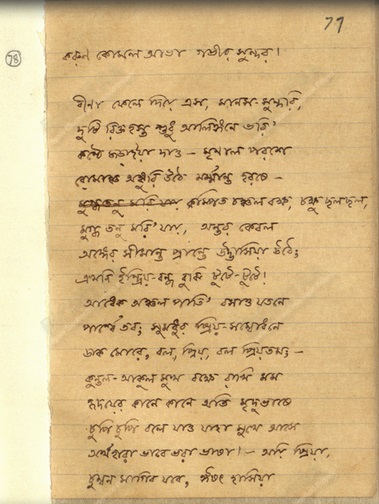 77
78
করুণ কোমল আভা গভীর সুন্দর!
বীণা ফেলে দিয়ে এস, মানস-সুন্দরী,
দুটি রিক্ত হস্ত শুধু আলিঙ্গনে ভরি'
কণ্ঠে জড়াইয়া দাও – মৃণাল পরশে
রোমাঞ্চ অঙ্কুরি উঠে মর্ম্মান্ত হরষে –
কম্পিত চঞ্চল বক্ষ, চক্ষু ছলছল,
মুগ্ধ তনু মরি' যায়, অন্তর কেবল
অঙ্গের সীমান্ত প্রান্তে উদ্ভাসিয়া উঠে;
এখনি ইন্দ্রিয়-বন্ধ বুঝি টুটে-টুটে!
অর্দ্ধেক অঞ্চল পাতি' বসাও যতনে
পার্শ্বে তব; সুমধুর প্রিয়-সম্বোধনে
ডাক মোরে, বল, প্রিয়, বল প্রিয়তম; –
কুন্তল-আকুল মুখ বক্ষে রাখি মম
হৃদয়ের কানে কানে অতি মৃদু ভাষে
চুপি চুপি বলে যাও যাহা মুখে আসে
অর্থহারা ভাবে ভরা ভাষা! – অয়ি প্রিয়া,
চুম্বন মাগিব যবে, ঈষৎ হাসিয়া